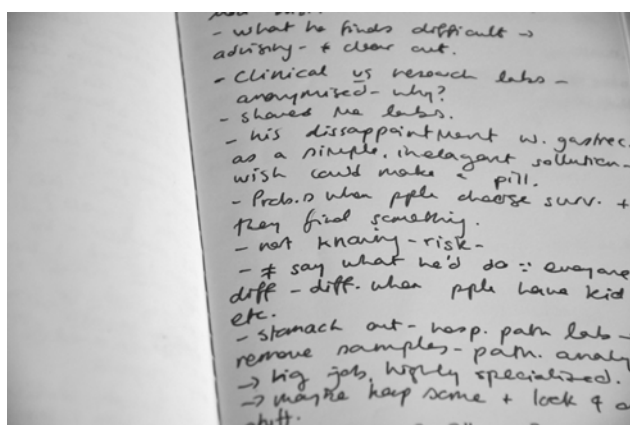 - what he finds difficult →
advising - ≠ clear cut.
- Clinical vs research labs -
anonymised - why?
- shared me labs.
- his dissappointment w. gastrec.
as a simple, inelagant sollution -
wish could make a pill.
- Prob. is when pple choose surv. +
they find something.
- not knowing - risk -
- ≠ say what he'd do ∵ everyone
diff - diff. when pple have kid
etc.
- stomach out - hosp. path lab -
remove samples - path. analy
→ big job, highly specialized.
→ maybe keep some + lock